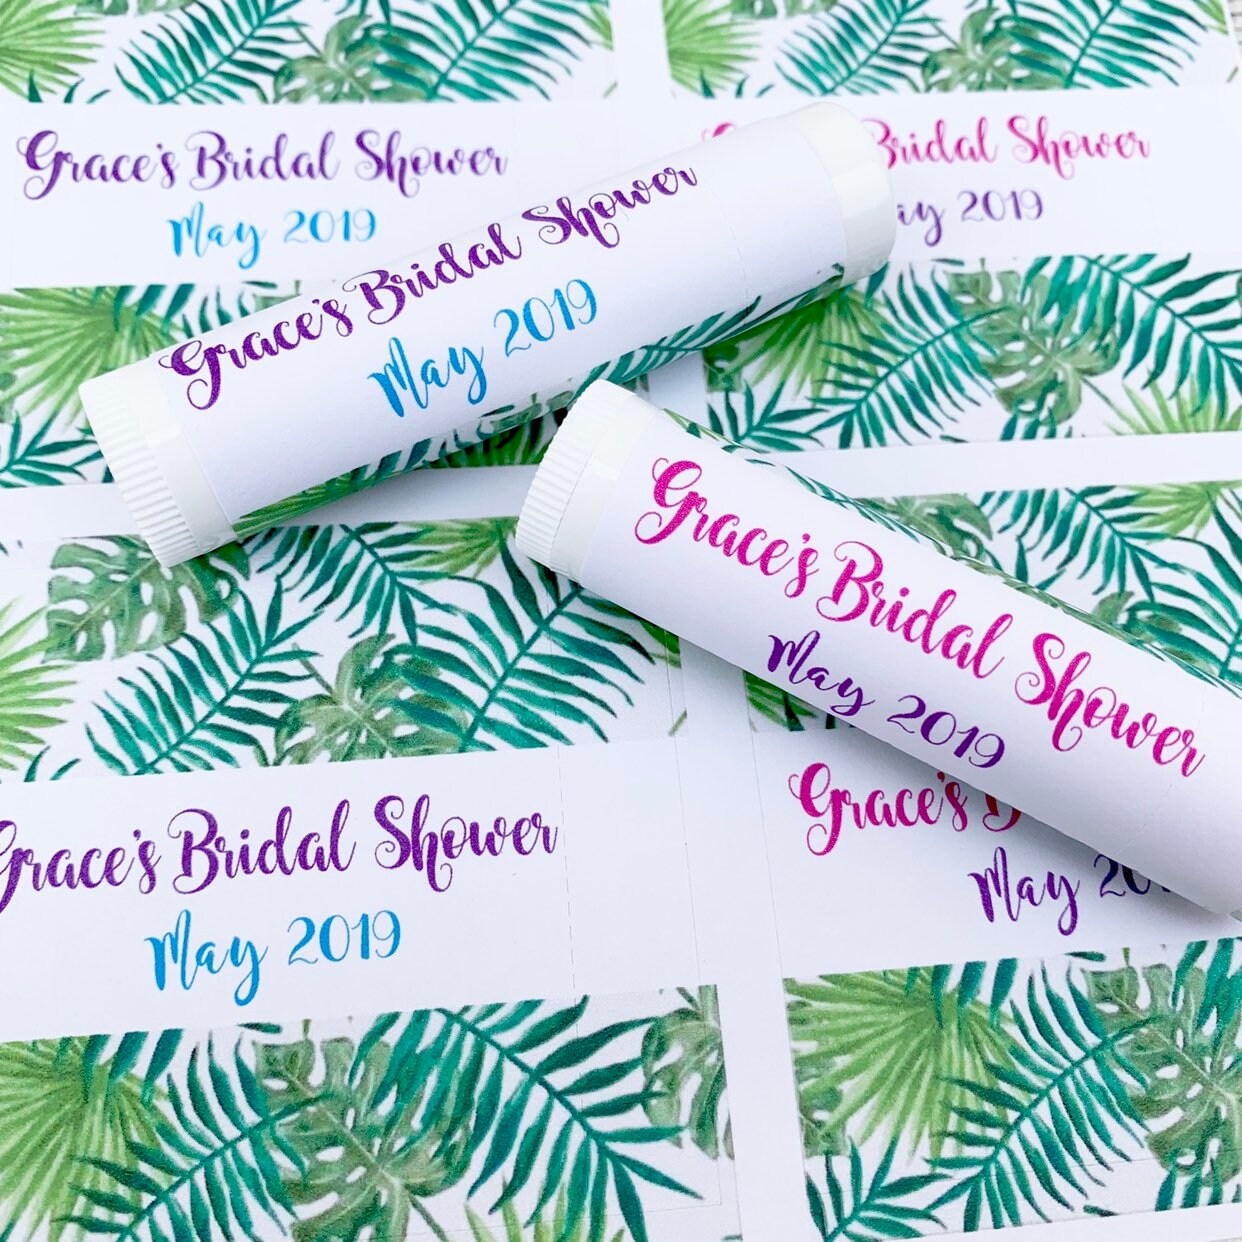 Grace's Bridal Shower
May 2019
Bridal Shower
2019
Grace's Bridal Shower
May 2019
Grace's Bridal Shower
May 2019
Grace's Bridal Shower
May 2019
Grace's
May